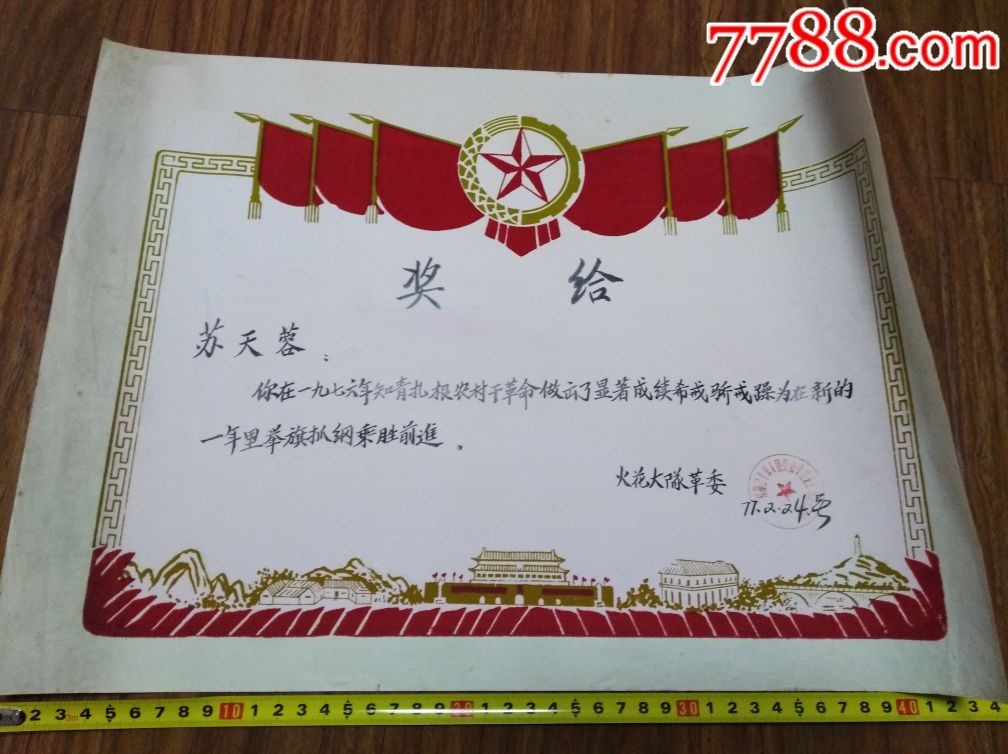 7788.com
奖 给
苏天蓉：
你在一九七六年知青扎根农村干革命做出了显著成续希戒骄戒躁为在新的
一年里举旗抓纲乘胜前進。
火花大隊革委
77.2.24.号
2 3 4 5 6 7 8 9 10 1 2 3 4 5 6 7 8 9 20 1 2 3 4 5 6 7 8 9 30 1 2 3 4 5 6 7 8 9 40 1 2 3 4